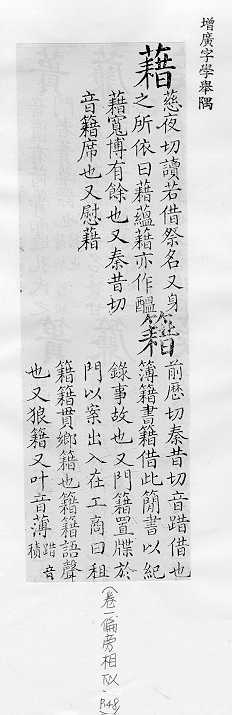 增廣字學舉隅
藉 慈夜切讀若借祭名又身
之所依曰藉蘊藉亦作醞
藉寬博有餘也又秦昔切
音籍席也又慰藉
籍 前歷切秦昔切音踖借也
簿籍書籍借此簡書以紀
錄事故也又門籍置牒於
門以案出入在工商曰租
籍籍貫鄉籍也籍籍語聲
也又狼籍又叶音薄 踖音
積
(卷一偏旁相似 P.48)